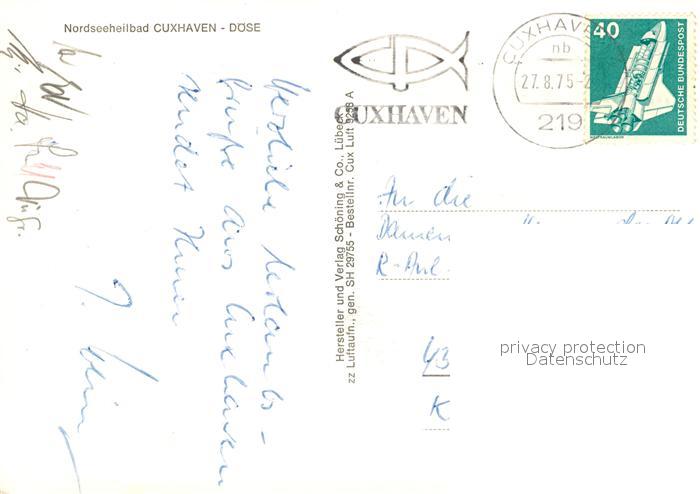 Nordseeheilbad CUXHAVEN - DÖSE
Herzliche Urlaubs-
grüße aus Cuxhaven
sendet Ihnen
Hersteller und Verlag Schöning & Co., Lübeck
zz Luftaufn., gen. SH 29755 - Bestellnr. Cux Luft 9238 A
CUXHAVEN
CUXHAVEN
nb
27.8.75-2
219
40
DEUTSCHE BUNDESPOST
WELTRAUMLABOR
An die
Damen
R-Anl.
43
K
privacy protection
Datenschutz